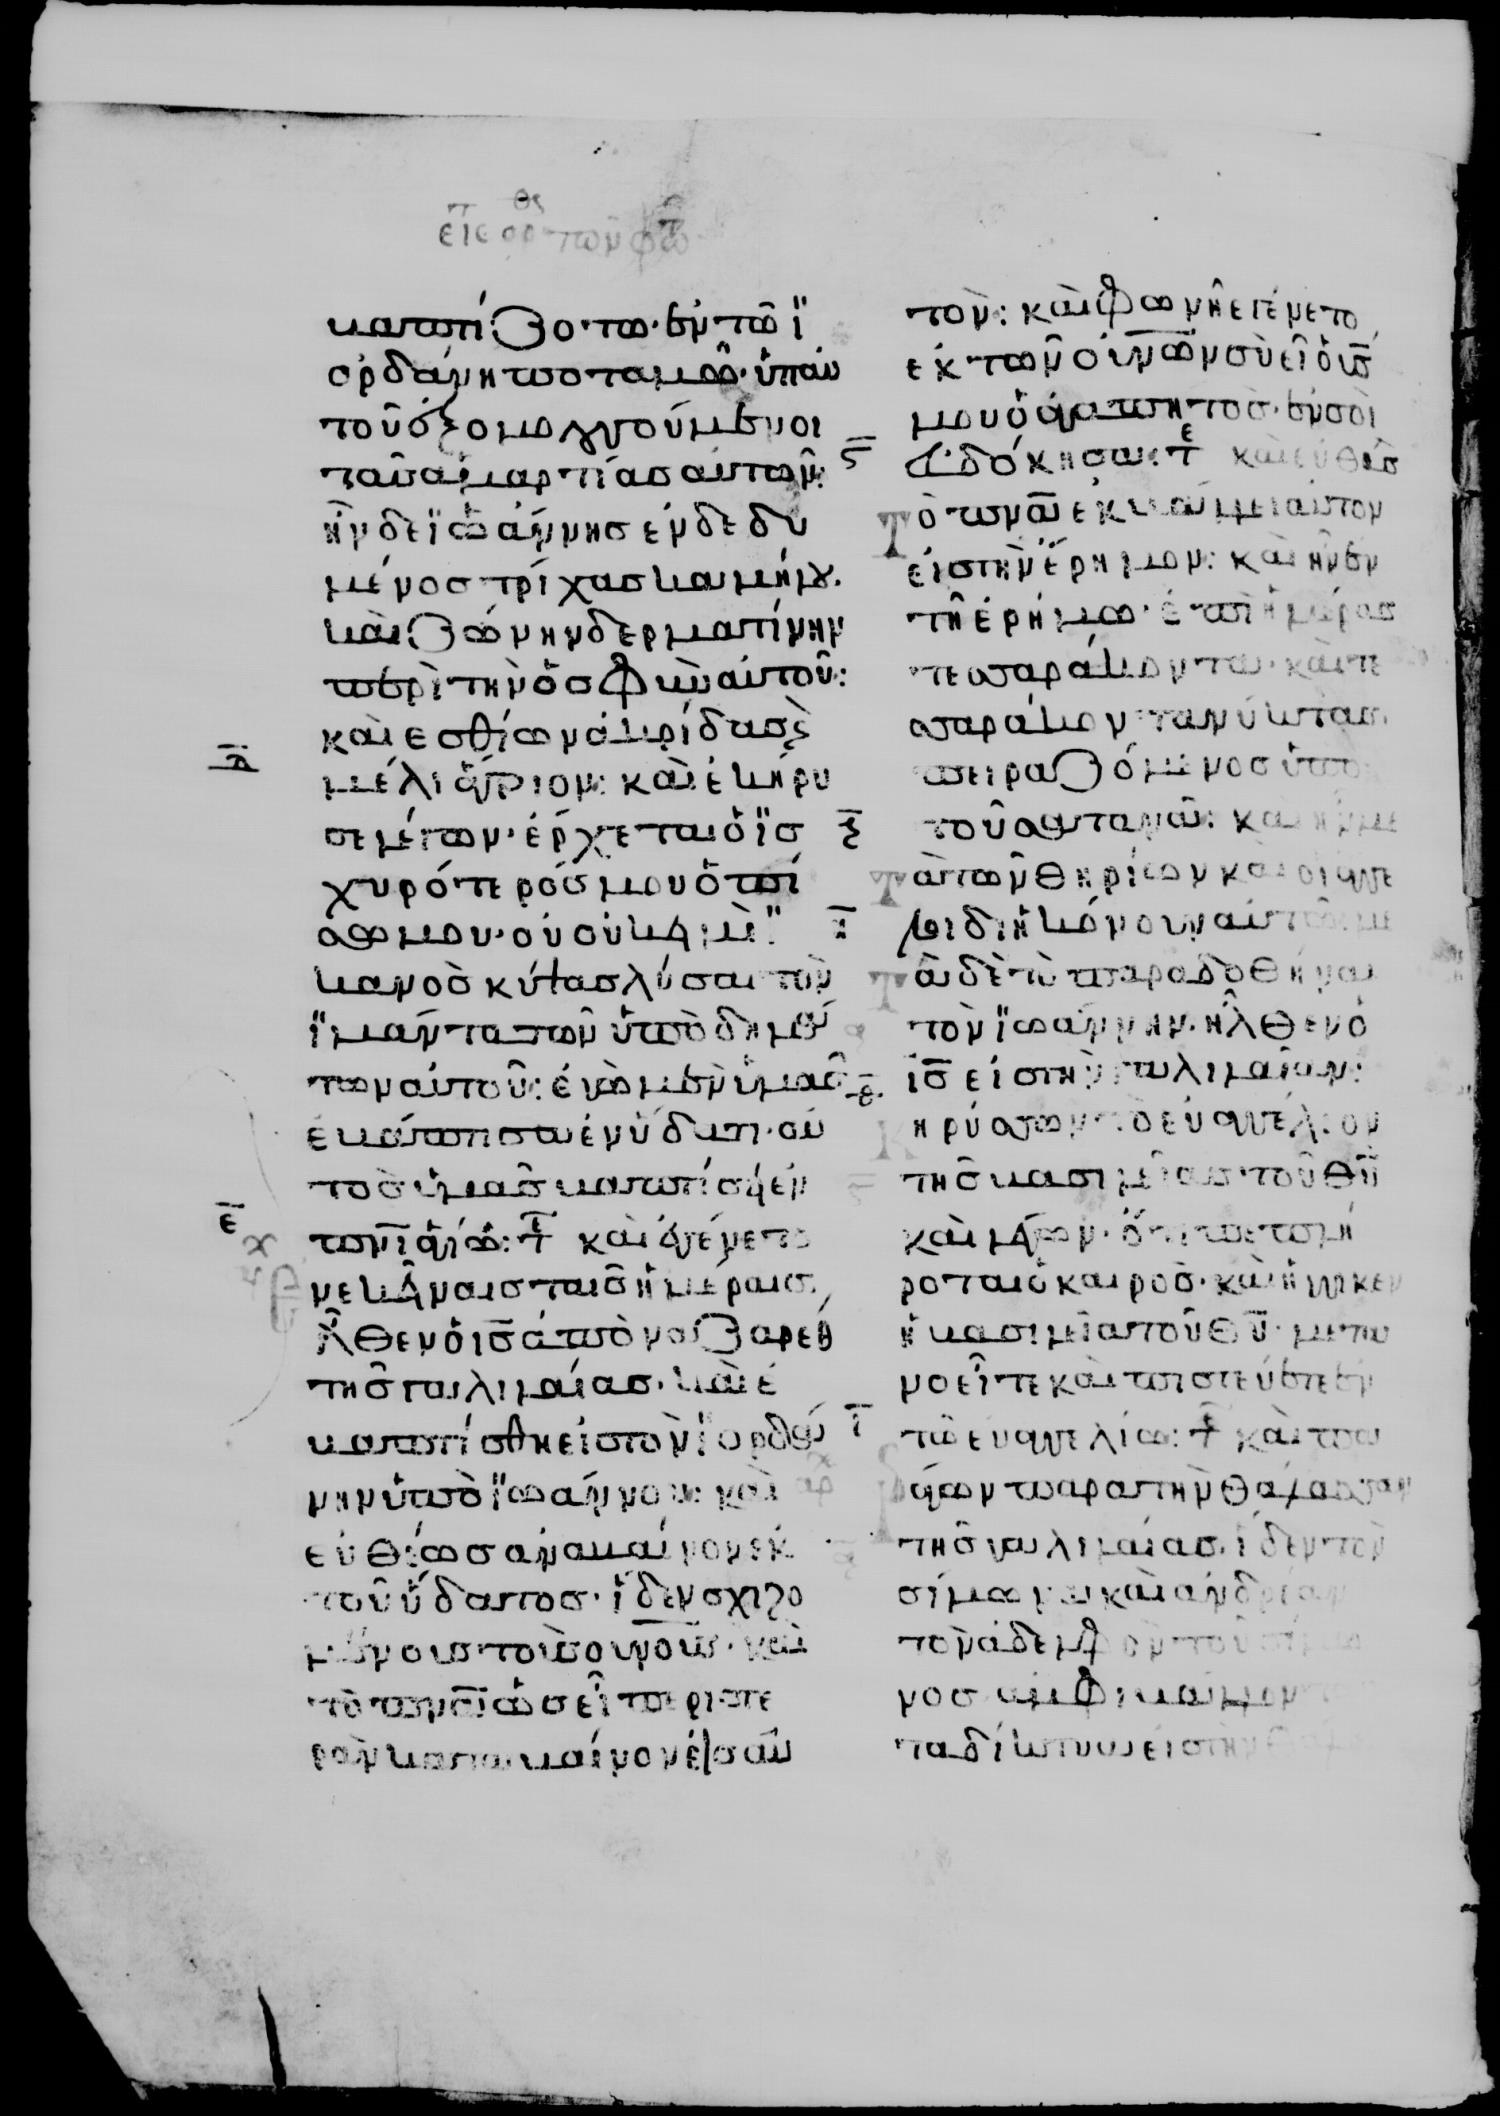 βαπτίζοντο ἐν τῶ ἰ
ορδάνη ποταμῶ ὑπ αυ
τοῦ ἐξομολογούμενοι
τὰς ἁμαρτίας αὐτῶν:
ἦν δε ἰωάννης ἐνδεδυ
μένος τρίχας καμήλου.
καὶ ζώνην δερματίνην
περὶ τὴν ὀσφὺν αὐτοῦ:
καὶ εσθίων ἀκρίδας ϗ
μέλι ἄγριον: καὶ ἐκήρυ
σε λέγων· ἔρχεται ὁ ἰσ
χυρότερός μου ὀπί
σω μου· οὗ οὐκ εἰμὶ ἱ
κανὸς κύψας λύσαι τὸν
ἱμάντα τῶν ὑποδημά
των αὐτοῦ: ἐγὼ μὲν ὑμᾶς
ἐβάπτισα ἐν ὕδατι· αὐ
τὸς ὑμᾶς βαπτίσει ἐν
πνι ἁγίω: καὶ ἐγένετο
ἐν ἐκείναις ταῖς ἡμέραις,
ἦλθεν ὁ ις ἀπὸ ναζαρεθ
τῆς γαλιλαίας. καὶ ἐ
βαπτίσθη εἰς τὸν ἰορδά
νην ὑπὸ ἰωάννου: καὶ
εὐθέως ἀναβαίνον ἐκ
τοῦ ὕδατος· ἴδεν σχιζο
μένους τοὺς ουνους· καὶ
τὸ πνα ὡσεὶ περιστε
ρὰν καταβαίνον ἐπ αὐ
τὸν: καὶ φωνὴ εγένετο
ἐκ τῶν οὐνῶν σὺ εἶ ὁ υς
μου ὁ ἀγαπητὸς· ἐν σοὶ
εὐδόκησα: καὶ εὐθέως
τὸ πνα ἐκβάλλει αὐτον
εἰς τὴν ἔρημον: καὶ ἦν ἐν
τῆ ἐρήμω· ἐπὶ ἡμέρας
τεσσαράκοντα· καὶ τε
σσαράκοντα νύκτας
πειραζόμενος ὑπὸ
τοῦ σατανᾶ: καὶ ἦν με
τὰ τῶν θηρίων καὶ οἱ αγγε
λοι διηκόνουν αὐτῶ: με
τὰ δὲ τὸ παραδοθῆναι
τὸν ἰωάννην· ἦλθεν ὁ
ις εἰς τὴν γαλιλαίαν:
κηρύσσων τὸ εὐαγγέλιον
τῆς βασιλείας τοῦ θυ
καὶ λέγων· ὅτι πεπλή
ρωται ὁ καιρὸς· καὶ ἤγγικεν
ἡ βασιλεία τοῦ θυ· μετα
νοεῖτε καὶ πιστεύετε ἐν
τῶ εὐαγγελίω: καὶ παρα
γων παρα τὴν θάλασσαν
τῆς γαλιλαίας. ἴδεν τὸν
σίμωνα καὶ ανδρέαν
τὸν ἀδελφὸν τοῦ σίμω
νος ἀμφιβάλλοντας
τα δίκτυα εἰς τὴν θαλα